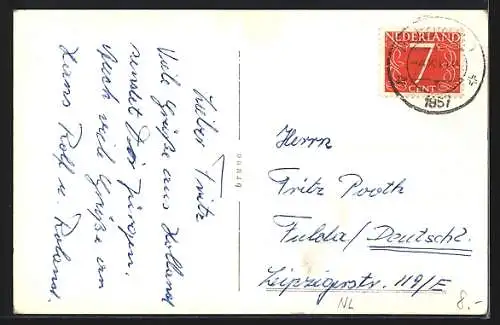 Lieber Fritz
Viele Grüße aus Holland
sendet Dir Jürgen.
Auch viele Grüße an
Hans Rolf u. Roland.
NEDERLAND
7
CENT
1957
Herrn
Fritz Pooth
Fulda/Deutschl.
Leipzigerstr. 119/E
NL
8.-